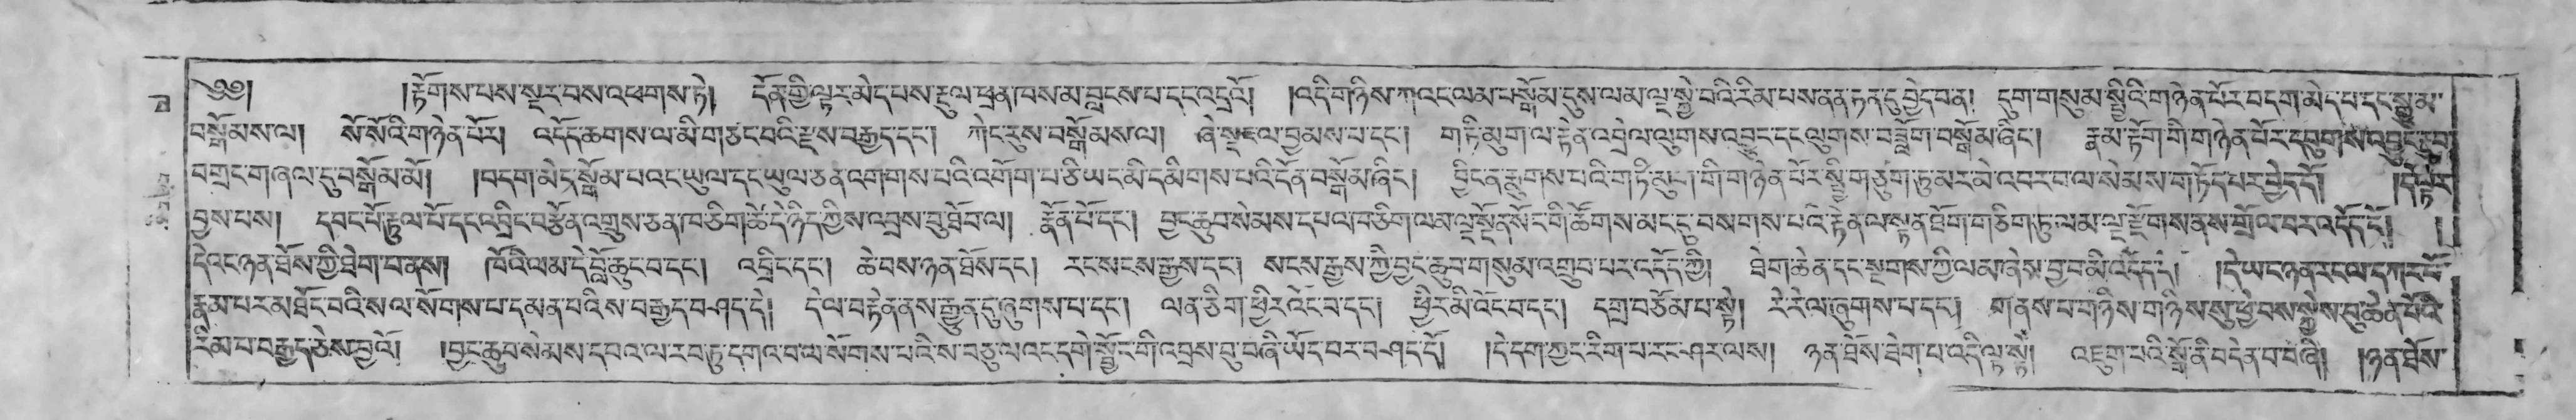 ༄༅། །རྟོགས་པས་སྔར་བས་འཕགས་ཏེ། དོན་གྱི་ལྟར་མེད་པས་རྡུལ་ཕྲན་ཁས་མ་བླངས་པ་དང་འདྲའོ། །འདི་གཉིས་ཀ་འང་ལམ་བསྒོམ་དུས་ལམ་ལྔ་སྐྱེ་བའི་རིམ་པས་ནན་ཏན་དུ་བྱེད་བན། དུག་གསུམ་སྤྱིའི་གཉེན་པོར་བདག་མེད་པ་དང་སྙམ་
བསྒོམས་ལ། སོ་སོའི་གཉེན་པོར། འདོད་ཆགས་ལ་མི་གཙང་བའི་རྫས་བརྒྱད་དང་། ཀེང་རུས་བསྒོམས་ལ། ཞེ་སྡང་ལ་བྱམས་པ་དང་། གཏི་མུག་ལ་རྟེན་འབྲེལ་ལུགས་འབྱུང་དང་ལུགས་བཟློག་བསྒོམ་ཞིང་། རྣམ་རྟོག་གི་གཉེན་པོར་དབུགས་འབྱུང་རྔུབ།
བགྲང་གཞལ་དུ་བསྒོམ་མོ། །བདག་མེད་སྒོམ་པ་འང་ཡུལ་དང་ཡུལ་ཅན་འགགས་པའི་འགོག་པ་ཅི་ཡང་མི་དམིགས་པའི་དོན་བསྒོམ་ཞིང་། བྱིང་ན་རྨུགས་པའི་གཏི་མུག་གི་གཉེན་པོར་སྤྱི་གཙུག་ཏུ་མར་མེ་འབར་བ་ལ་སེམས་གཏོད་པར་བྱེད་དོ། །དེ་ལྟར་
བྱས་པས། དབང་པོ་རྟུལ་པོ་དང་འབྲིང་བརྩོན་འགྲུས་ཅན་བཅིག་ཚེ་དེ་ཉིད་ཀྱིས་འབྲས་བུ་ཐོབ་ལ། རྣོན་པོ་དང་། བྱང་ཆུབ་སེམས་དཔའ་བཅིག་ལམ་ལྔ་སྔོན་སོང་གི་ཚོགས་མང་དུ་བསགས་པའི་རྟེན་ལ་སྟན་ཐོག་གཅིག་ཏུ་ལམ་ལྔ་རྫོགས་ནས་གྲོལ་བར་འདོད་དོ། །
དེ་འང་ཉན་ཐོས་ཀྱི་ཐེག་པ་ནས། ཁོའི་ལམ་དེ་བློ་ཆུང་བ་དང་། འབྲིང་དང་། ཆེ་བས་ཉན་ཐོས་དང་། རང་སངས་རྒྱས་དང་། སངས་རྒྱས་ཀྱི་བྱང་ཆུབ་གསུམ་འགྲུབ་པར་འདོད་ཀྱི། ཐེག་ཆེན་དང་སྔགས་ཀྱི་ལམ་ཞེས་བྱ་བ་མི་འདོད་དོ། །དེ་ཡང་ཉན་རང་ལ་དཀར་པོ་
རྣམ་པར་མཐོང་བའི་ས་ལ་སོགས་པ་དམན་པའི་ས་བརྒྱད་བཤད་དེ། དེ་ལ་བརྟེན་ནས་རྒྱུན་དུ་ཞུགས་པ་དང་། ལན་ཅིག་ཕྱིར་འོང་བ་དང་། ཕྱིར་མི་འོང་བ་དང་། དགྲ་བཅོམ་པ་སྟེ། རེ་རེ་ལ་ཞུགས་པ་དང་། གནས་པ་གཉིས་གཉིས་སུ་ཕྱེ་བས་སྐྱེས་བུ་ཆེན་པོའི་
རིམ་པ་བརྒྱད་ཅེས་བྱའོ། །བྱང་ཆུབ་སེམས་དཔའ་ལ་རབ་ཏུ་དགའ་བ་ལ་སོགས་པའི་ས་བཅུ་ལ་འང་དགེ་སྦྱོང་གི་འབྲས་བུ་བཞི་ཡོད་བར་བཤད་དོ། །དེ་དག་ཀྱང་རིག་པ་རང་ཤར་ལས། ཉན་ཐོས་ཐེག་པ་འདི་ལྟ་སྟེ། འཇུག་པའི་སྒོ་ནི་བདེན་པ་བཞི། །ཉན་ཐོས་